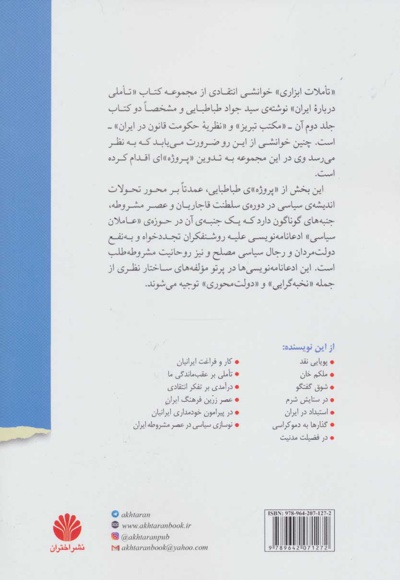 «تأملات ابزاری» خوانشی انتقادی از مجموعه کتاب «تأملی
دربارهٔ ایران» نوشته‌ی سید جواد طباطبایی و مشخصاً دو کتاب
جلد دوم آن ـ «مکتب تبریز» و «نظریهٔ حکومت قانون در ایران» ـ
است. چنین خوانشی از این رو ضرورت می‌یابد که به نظر
می‌رسد وی در این مجموعه به تدوین «پروژه»ای اقدام کرده
است.
این بخش از «پروژه»ی طباطبایی، عمدتاً بر محور تحولات
اندیشه‌ی سیاسی در دوره‌ی سلطنت قاجاریان و عصر مشروطه،
جنبه‌های گوناگون دارد که یک جنبه‌ی آن در حوزه‌ی «عاملان
سیاسی» ادعانامه‌نویسی علیه روشنفکران تجددخواه و به‌نفع
دولت‌مردان و رجال سیاسی مصلح و نیز روحانیت مشروطه‌طلب
است. این ادعانامه‌نویسی‌ها در پرتو مؤلفه‌های ساختار نظری از
جمله «نخبه‌گرایی» و «دولت‌محوری» توجیه می‌شوند.
از این نویسنده:
• پویایی نقد
• ملکم خان
• شوق گفتگو
• در ستایش شرم
• استبداد در ایران
• گذارها به دموکراسی
• در فضیلت مدنیت
• کار و فراغت ایرانیان
• تأملی بر عقب‌ماندگی ما
• درآمدی بر تفکر انتقادی
• عصر زرّین فرهنگ ایران
• در پیرامون خودمداری ایرانیان
• نوسازی سیاسی در عصر مشروطه ایران
akhtaran
www.akhtaranbook.ir
@akhtaranpub
akhtaranbook@yahoo.com
نشر اختران
ISBN: 978-964-207-127-2
9 789642 071272